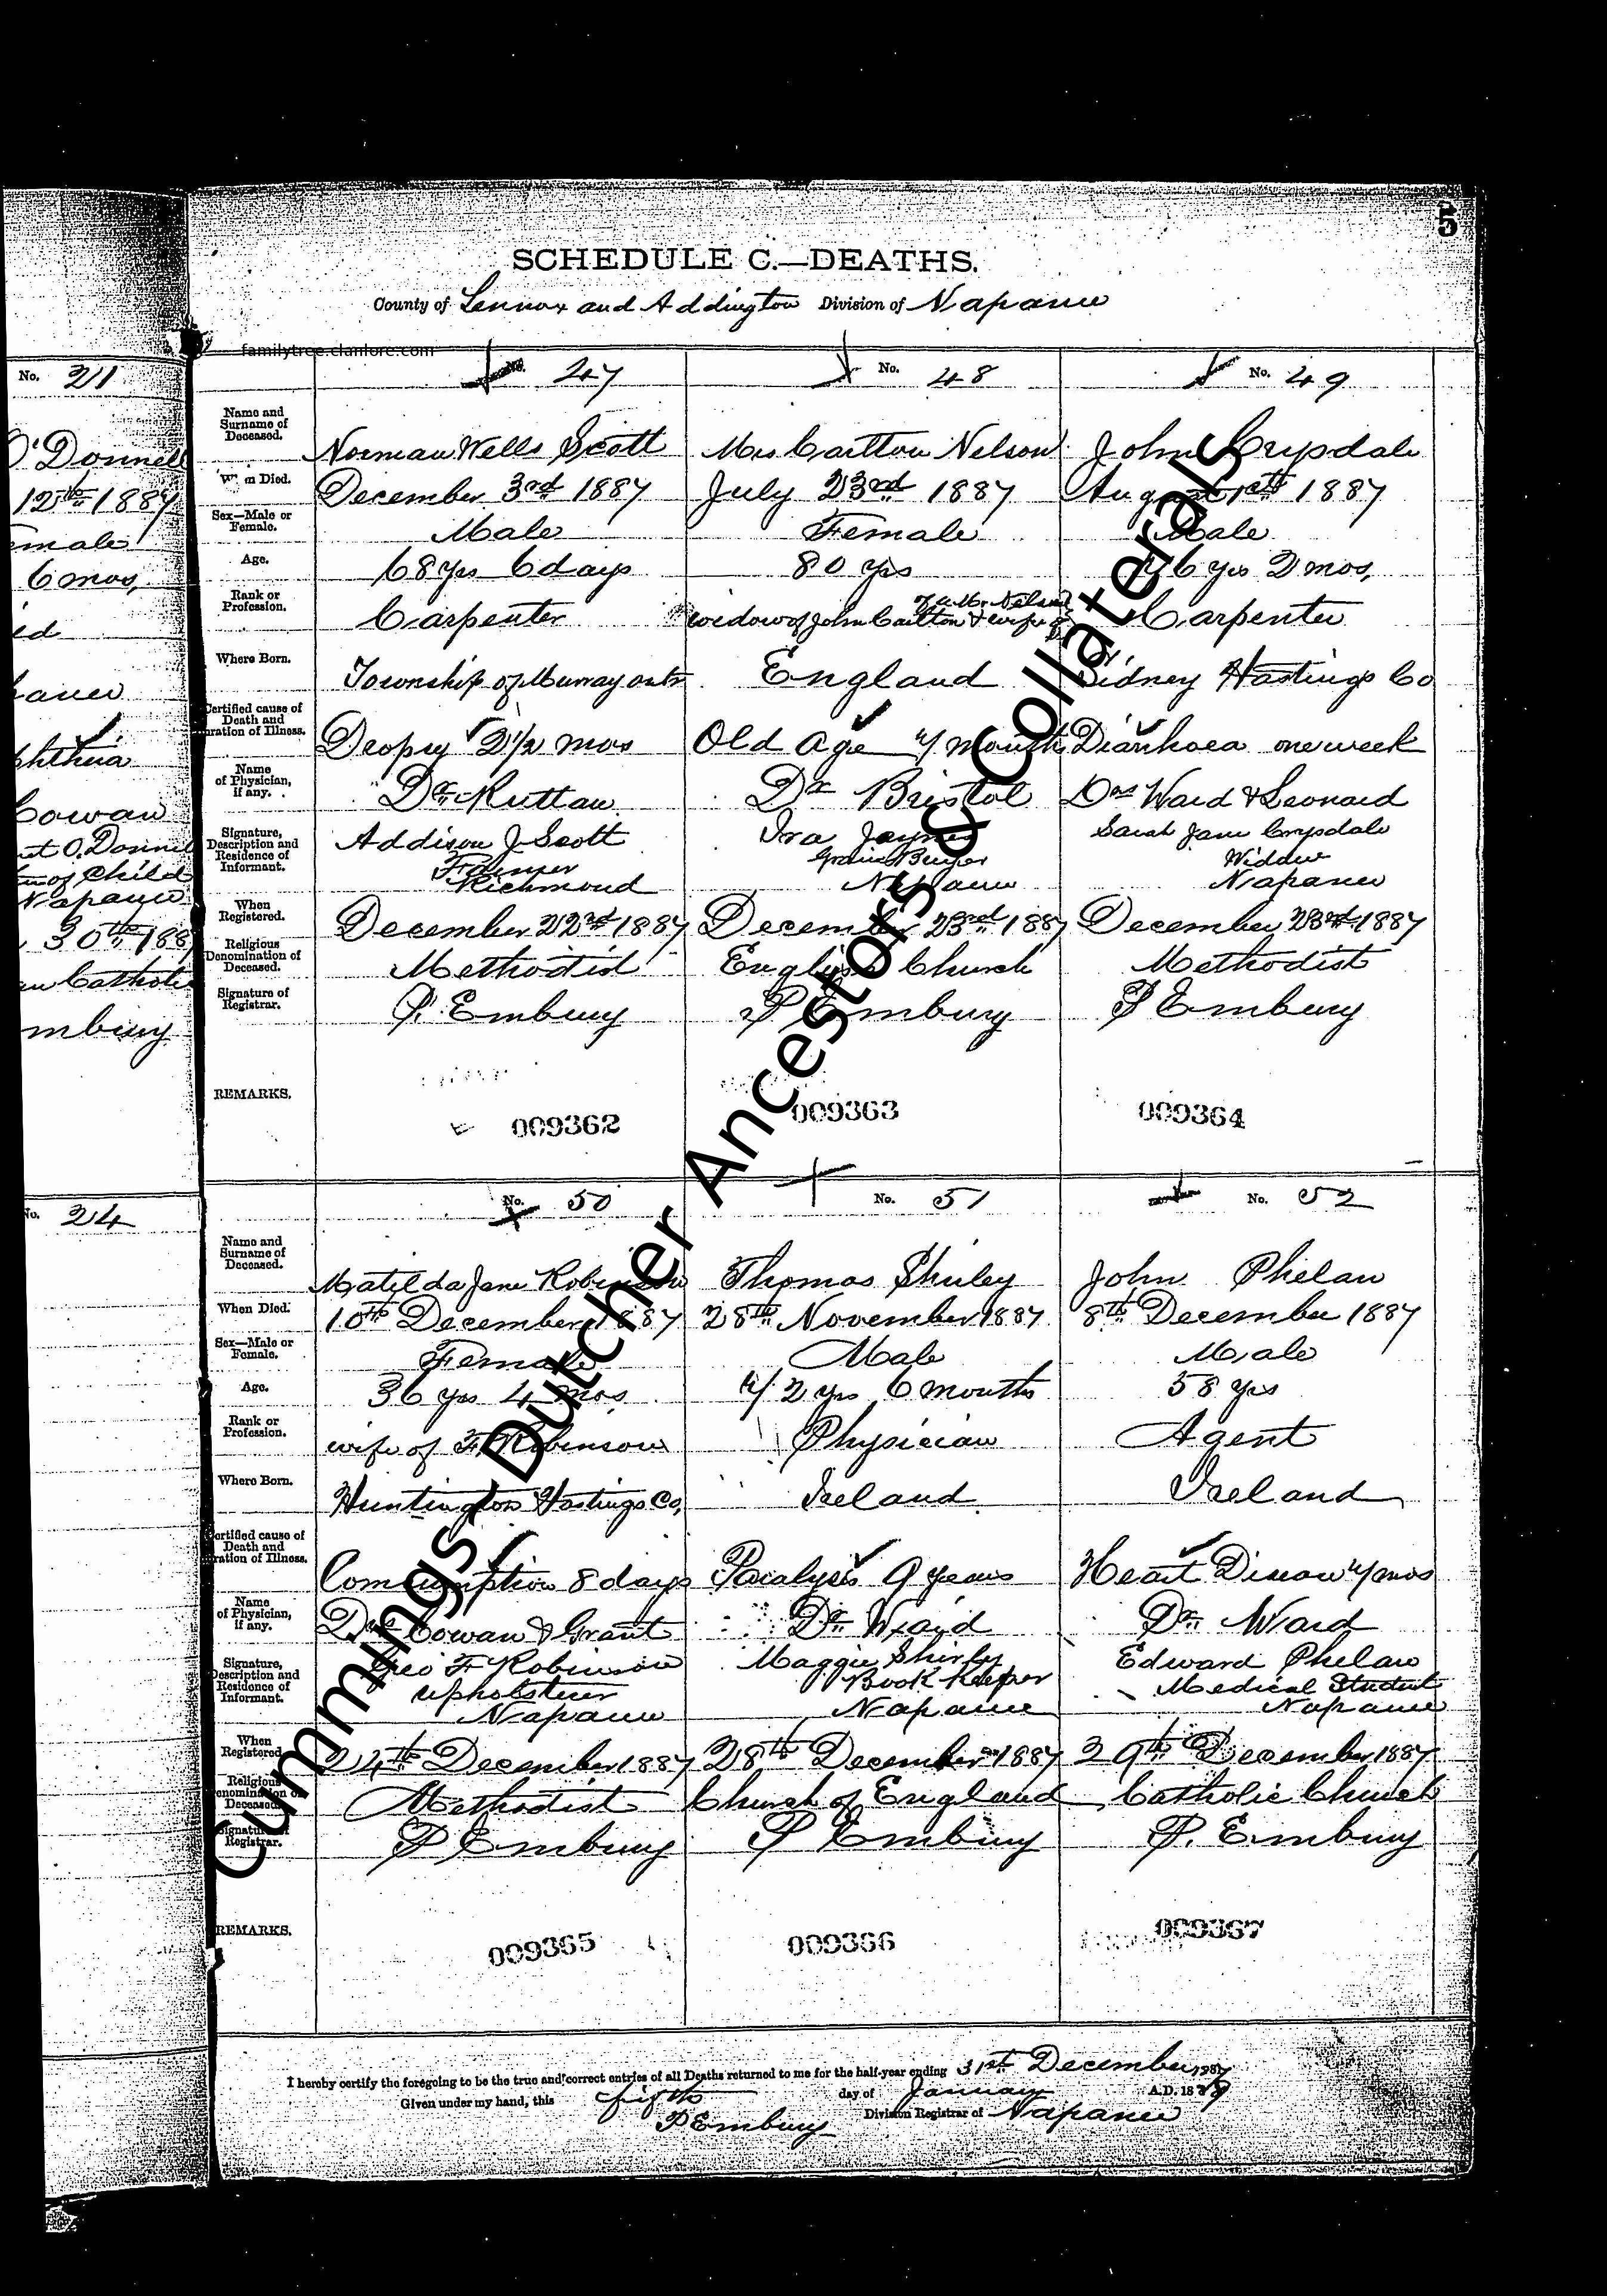 5
SCHEDULE C.—DEATHS.
County of Lennox and Addington Division of Napanee
familytree.clanlore.com
No. 21
O'Donnell
12th 1887
6 mos,
Cowan
of Child
Napanee
30th 188
No. 24
No. 47 No. 48 No. 49
Name and Surname of Deceased. Norman Wells Scott Mrs Carlton Nelson John Crysdale
When Died. December 3rd 1887 July 23rd 1887 August 1887
Sex—Male or Female. Male Female Male
Age. 68 yrs 6 days 80 yrs 46 yrs 2 mos,
Rank or Profession. Carpenter widow of John Carlton & wife of Carpenter
Where Born. Township of Murray Ontr England Sidney Hastings Co
Certified cause of Death and Duration of Illness. Dropsy 2 1/2 mos Old Age 4 month Diarrhoea one week
Name of Physician, if any. Dr. Ruttan Dr Bristol Drs Ward & Leonard
Signature, Description and Residence of Informant. Addison J Scott Farmer Richmond Ira Jaynes Grain Buyer Napanee Sarah Jane Crysdale Widdow Napanee
When Registered. December 22nd 1887 December 23rd 1887 December 23rd 1887
Religious Denomination of Deceased. Methodist English Church Methodist
Signature of Registrar. P. Embury P Embury P Embury
REMARKS. 009362 009363 009364
No. 50 No. 51 No. 52
Name and Surname of Deceased. Matilda Jane Robinson Thomas Shirley John Phelan
When Died. 10th December 1887 28th November 1887 8th December 1887
Sex—Male or Female. Female Male Male
Age. 36 yrs 4 mos 42 yrs 6 months 58 yrs
Rank or Profession. wife of F. Robinson Physician Agent
Where Born. Huntington Hastings Co, Ireland Ireland
Certified cause of Death and Duration of Illness. Comsumption 8 days Paralysis 9 years Heart Disease 4 mos
Name of Physician, if any. Drs Cowan & Grant Dr. Ward Dr. Ward
Signature, Description and Residence of Informant. Geo F Robinson upholsterer Napanee Maggie Shirley Book Keeper Napanee Edward Phelan Medical Student Napanee
When Registered. 24th December 1887 28th December 1887 29th December 1887
Religious Denomination of Deceased. Methodist Church of England Catholic Church
Signature of Registrar. P Embury P Embury P. Embury
REMARKS. 009365 009366 009367
I hereby certify the foregoing to be the true and correct entries of all Deaths returned to me for the half-year ending 31st December 1887
Given under my hand, this fifth day of January A.D. 18
P Embury Division Registrar of Napanee
Cummings Dutcher Ancestors & Collaterals